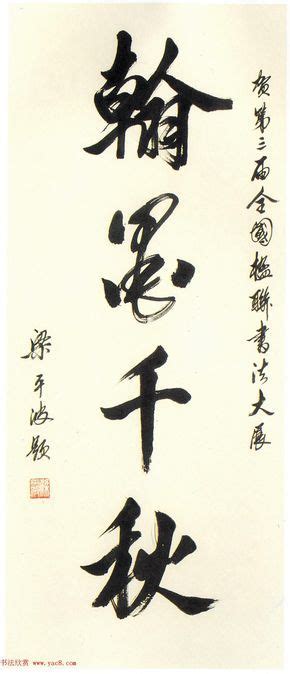 贺第三届全國楹聯書法大展
翰墨千秋
梁平波题
书法欣赏 www.yac8.com